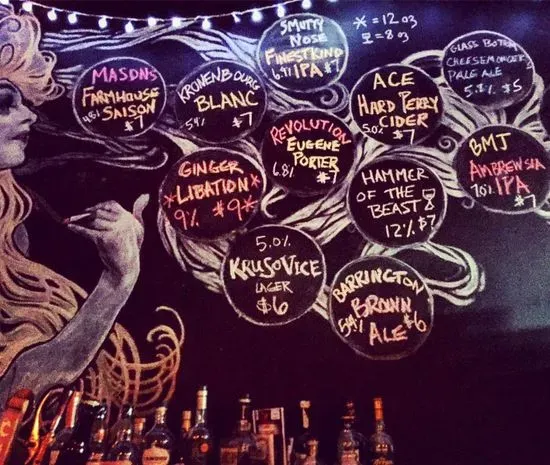 SMUTTY
NOSE
FINESTKIND
6.9% IPA $7
= 12 oz
= 8 oz
MASONS
FARMHOUSE
SAISON
$7
KRONENBOURG
BLANC
5% $7
ACE
HARD PERRY
CIDER
5.0% $7
GLASS BOTTOM
CHEESEMONGER
PALE ALE
$5
REVOLUTION
EUGENE
PORTER
6.8% $7
BMJ
IPA
$7
GINGER
*LIBATION*
9% $9*
HAMMER
OF THE
BEAST
12% $7
5.0%
KRUSOVICE
LAGER
$6
BARRINGTON
BROWN
ALE $6